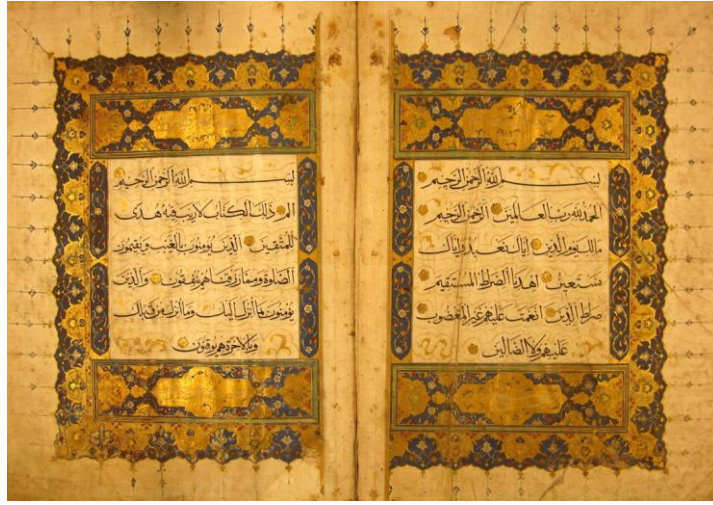 بسم الله الرحمن الرحيم
الحمد لله رب العالمين الرحمن الرحيم
مالك يوم الدين اياك نعبد واياك
نستعين اهدنا الصراط المستقيم
صراط الذين انعمت عليهم غير المغضوب
عليهم ولا الضالين
بسم الله الرحمن الرحيم
الم ذلك الكتاب لا ريب فيه هدى
للمتقين الذين يؤمنون بالغيب ويقيمون
الصلوة ومما رزقناهم ينفقون والذين
يؤمنون بما انزل اليك وما انزل من قبلك
وبالاخرة هم يوقنون